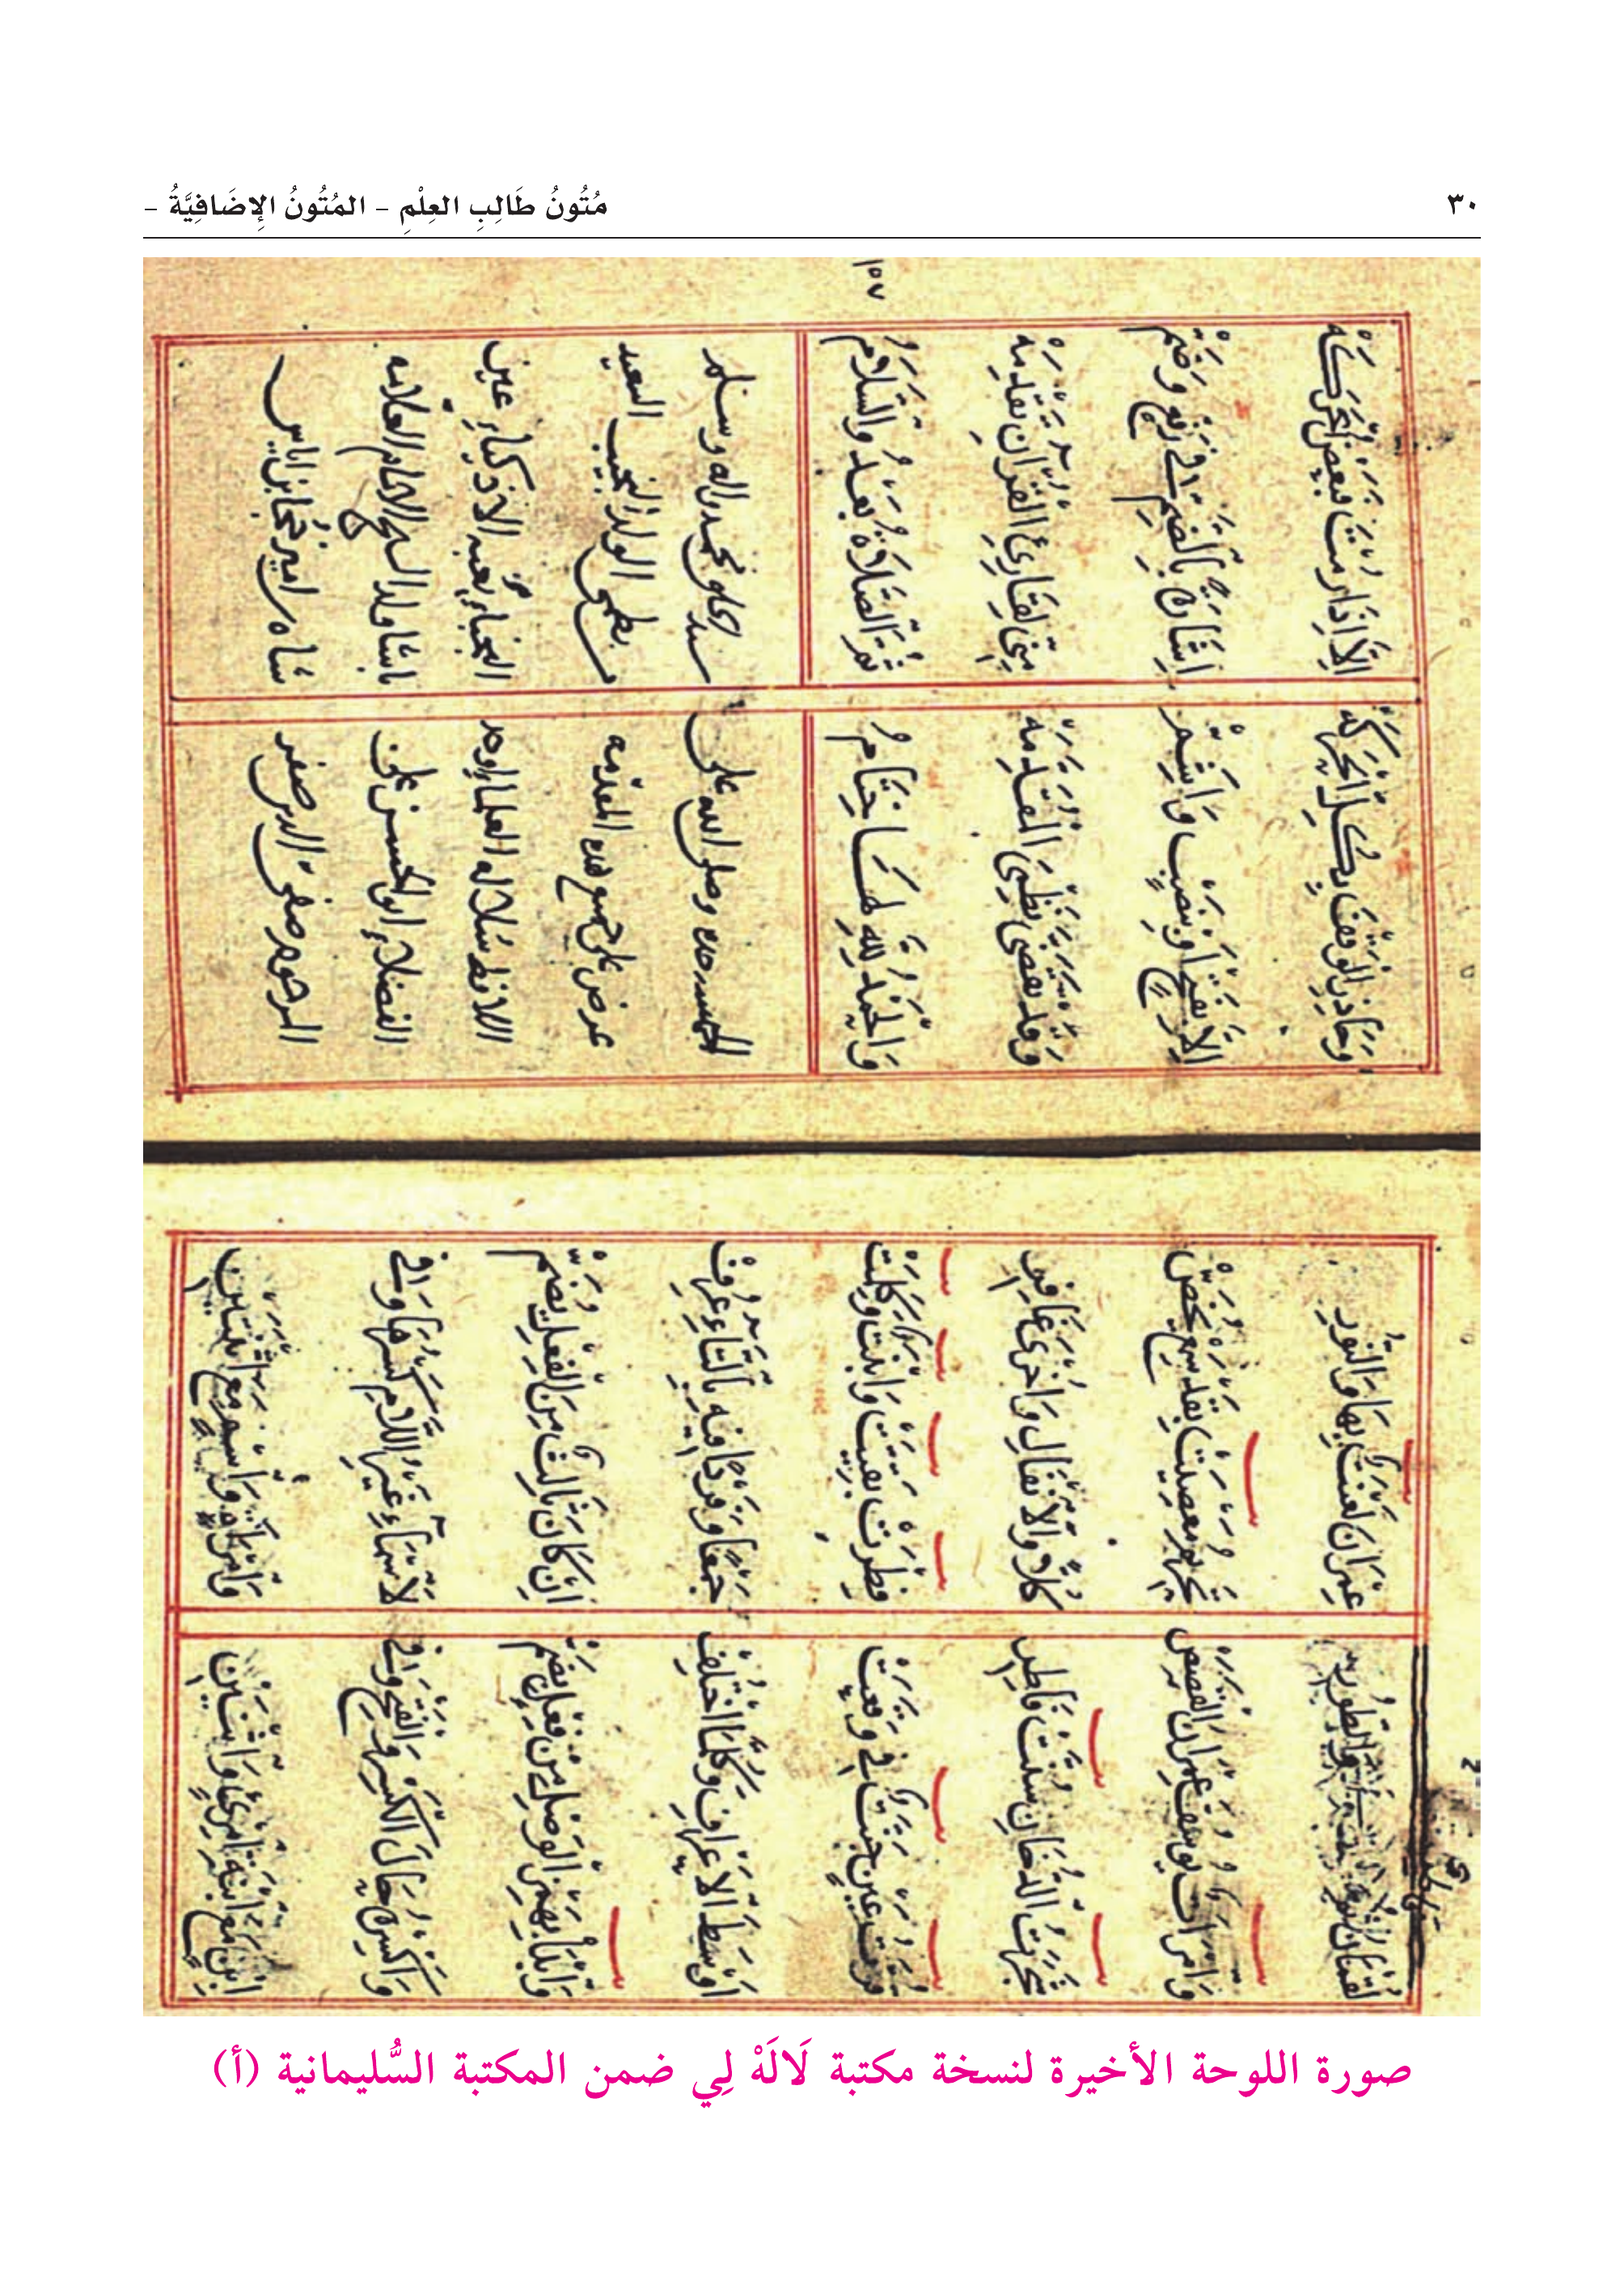 ٣٠
مُتُونُ طَالِبِ العِلْمِ – المُتُونُ الإِضَافِيَّةُ –
عِمْرَانَ لَعْنَتَ بِهَا وَالنُّورِ
وَامْرَاَتٌ يُوسُفَ عِمْرَانَ الْقَصَصْ
تَحْرِيمُ مَعْصِيَتْ بِقَدْ سَمِعْ يُخَصْ
شَجَرَتُ الدُّخَانِ سُنَّتْ فَاطِرِ
كُلًّا وَالْاَنْفَالِ وَاُخْرَى غَافِرِ
قُرَّتُ عَيْنٍ جَنَّتٌ فِي وَقَعَتْ
فِطْرَتْ بَقِيَّتْ وَابْنَتْ وَكَلِمَتْ
اَوْسَطَ الْاَعْرَافِ وَكُلُّ مَا اخْتُلِفْ
جَمْعًا وَفَرْدًا فِيهِ بِالتَّاءِ عُرِفْ
وَابْدَأْ بِهَمْزِ الْوَصْلِ مِنْ فِعْلٍ بِضَمْ
اِنْ كَانَ ثَالِثٌ مِنَ الْفِعْلِ يُضَمْ
وَاكْسِرْهُ حَالَ الْكَسْرِ وَالْفَتْحِ وَفِي
لَاسْمَاءِ غَيْرَ اللَّامِ كَسْرُهَا وَفِي
اِبْنٍ مَعَ ابْنَةِ امْرِئٍ وَاثْنَيْنِ
وَامْرَأَةٍ وَاسْمٍ مَعَ اثْنَتَيْنِ
١٥٧
وَحَاذِرِ الْوَقْفَ بِكُلِّ الْحَرَكَهْ
اِلَّا اِذَا رُمْتَ فَبَعْضُ الْحَرَكَهْ
اِلَّا بِفَتْحٍ اَوْ بِنَصْبٍ وَاَشِمْ
اِشَارَةً بِالضَّمِّ فِي رَفْعٍ وَضَمْ
وَقَدْ تَقَضَّى نَظْمِيَ الْمُقَدِّمَهْ
مِنِّي لِقَارِئِ الْقُرْآنِ تَقْدِمَهْ
وَالْحَمْدُ لِلَّهِ لَهَا خِتَامُ
ثُمَّ الصَّلَاةُ بَعْدُ وَالسَّلَامُ
الحمد لله وحده وصلى الله على
سيدنا محمد واله وسلم
عرض علي جميع هذه المقدمه
من نظمي الولد النجيب السعيد
سلالة العلماء اوحد
النجباء بغية الاذكياء عين
الفضلاء ابو الحسن علي
باشا ولد الشيخ الامام العلامه
المرحوم صفي الدين صفر
شاه بن امير خجا بن اياس
صورة اللوحة الأخيرة لنسخة مكتبة لَالَهْ لِي ضمن المكتبة السُّليمانية (أ)